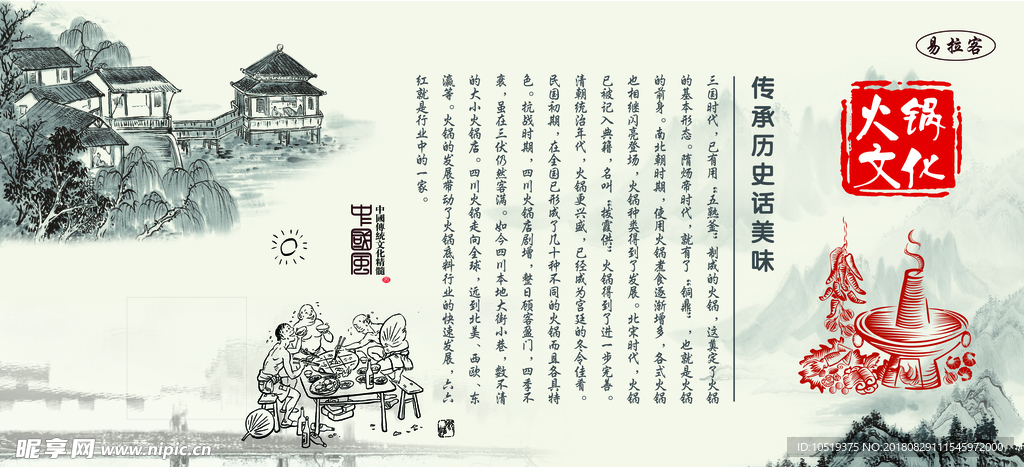 易拉客
火锅
文化
传承历史话美味
三国时代，已有用“五熟釜”制成的火锅，这奠定了火锅
的基本形态。隋炀帝时代，就有了“铜鼎”，也就是火锅
的前身。南北朝时期，使用火锅煮食逐渐增多，各式火锅
也相继闪亮登场，火锅种类得到了发展。北宋时代，火锅
已被记入典籍，名叫“拨霞供”火锅得到了进一步完善。
清朝统治年代，火锅更兴盛，已经成为宫廷的冬令佳肴。
民国初期，在全国已形成了几十种不同的火锅而且各具特
色。抗战时期，四川火锅店剧增，整日顾客盈门，四季不
衰，虽在三伏仍然客满。如今四川本地大街小巷，数不清
的大小火锅店。四川火锅走向全球，远到北美、西欧、东
瀛等。火锅的发展带动了火锅底料行业的快速发展，六六
红就是行业中的一家。
中國傳統文化精髓
中國風
昵享网 www.nipic.cn
ID:10519375 NO:20180829111545972000